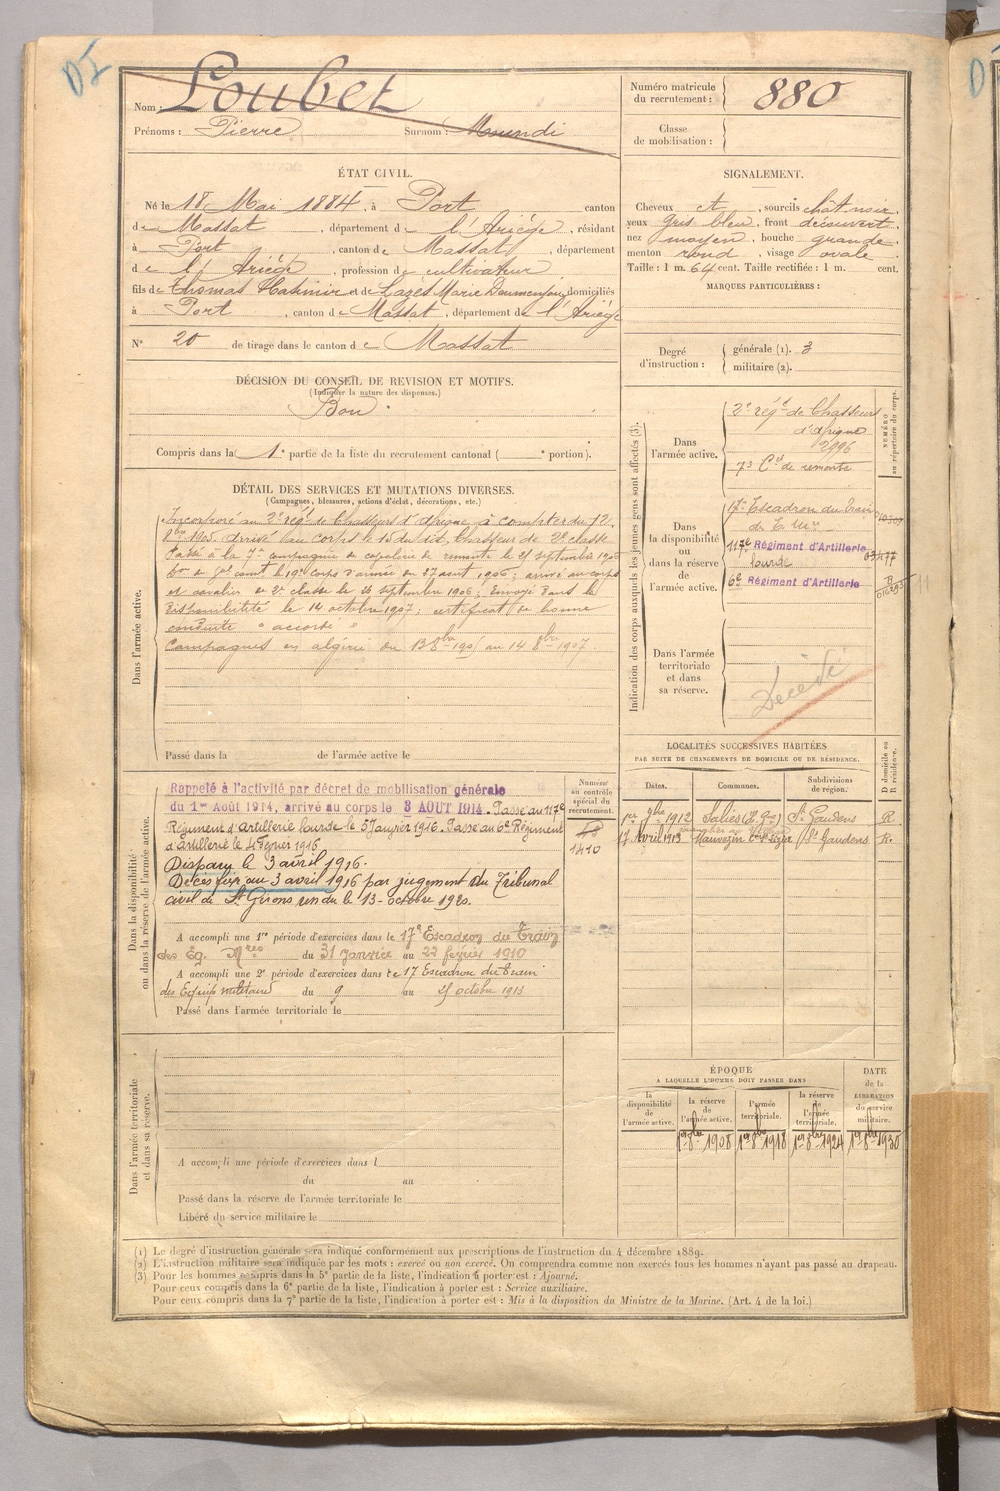 DI
Nom : Loubet
Prénoms : Pierre Surnom : Mundi
Numéro matricule du recrutement : 880
Classe de mobilisation :
ÉTAT CIVIL.
Né le 18 Mai 1884, à Port canton
de Massat, département de l'Ariége, résidant
à Port, canton de Massat, département
de l'Ariége, profession de cultivateur
fils de Thomas Casimir et de Cazes Marie Doumenjou domiciliés
à Port, canton de Massat, département de l'Ariége
N° 20 de tirage dans le canton de Massat
SIGNALEMENT.
Cheveux ct, sourcils chât noir,
yeux gris bleu, front découvert,
nez moyen, bouche grande
menton rond, visage ovale
Taille : 1 m. 64 cent. Taille rectifiée : 1 m. cent.
MARQUES PARTICULIÈRES :
Degré d'instruction : générale (1). 3
militaire (2).
DÉCISION DU CONSEIL DE REVISION ET MOTIFS.
(Indiquer la nature des dispenses.)
Bon.
Compris dans la 1e partie de la liste du recrutement cantonal ( e portion).
DÉTAIL DES SERVICES ET MUTATIONS DIVERSES.
(Campagnes, blessures, actions d'éclat, décorations, etc.)
Dans l'armée active.
Incorporé au 2e régt de Chasseurs d'Afrique à compter du 12
8bre 1905. arrivé au corps le 15 du dit, Chasseur de 2e classe
Passé à la 7e compagnie de cavaliers de remonte le 21 septembre 1906
on de gal comt le 19e corps d'armée du 27 août 1906; arrivé au corps
et cavalier de 2e classe le septembre 1906; Envoyé dans la
disponibilité le 14 octobre 1907; certificat de bonne
conduite "accordé"
Campagnes en algérie du 13 8bre 1905 au 14 8bre 1907.
Passé dans la de l'armée active le
Indication des corps auxquels les jeunes gens sont affectés (3).
NUMÉRO au répertoire du corps.
Dans l'armée active.
2e régt de Chasseurs
d'afrique
12996
7e Cie de remonte
Dans la disponibilité ou dans la réserve de l'armée active.
17e Escadron du Train
117e Régiment d'Artillerie
lourde
6e Régiment d'Artillerie
Dans l'armée territoriale et dans sa réserve.
Décédé
LOCALITÉS SUCCESSIVES HABITÉES
PAR SUITE DE CHANGEMENTS DE DOMICILE OU DE RÉSIDENCE.
Dates. Communes. Subdivisions de région. D domicile ou R résidence.
1er 9bre 1912 Salies (Hte Gne) St Gaudens R
17 Avril 1913 Mauvezin St Gaudens R.
Dans la disponibilité ou dans la réserve de l'armée active.
Numéro au contrôle spécial du recrutement.
1410
Rappelé à l'activité par décret de mobilisation générale
du 1er Août 1914, arrivé au corps le 3 AOUT 1914. Passé au 117e
Régiment d'artillerie lourde le 5 Janvier 1916. Passé au 6e Régiment
d'artillerie le 4 février 1916
Disparu le 3 avril 1916.
Décès fixé au 3 avril 1916 par jugement du Tribunal
civil de St Girons rendu le 13 octobre 1920.
A accompli une 1re période d'exercices dans le 17e Escadron du Train
des Eq. Mres du 31 Janvier au 22 février 1910
A accompli une 2e période d'exercices dans le 17 Escadron du train
des Equip militaires du 9 au 25 octobre 1913
Passé dans l'armée territoriale le
Dans l'armée territoriale et dans sa réserve.
A accompli une période d'exercices dans l
du au
Passé dans la réserve de l'armée territoriale le
Libéré du service militaire le
ÉPOQUE
A LAQUELLE L'HOMME DOIT PASSER DANS
la disponibilité de l'armée active. la réserve de l'armée active. l'armée territoriale. la réserve de l'armée territoriale. DATE de la LIBÉRATION du service militaire.
1er 8bre 1908 1er 8bre 1918 1er 8bre 1924 1er 8bre 1930
(1) Le degré d'instruction générale sera indiqué conformément aux prescriptions de l'instruction du 4 décembre 1889.
(2) L'instruction militaire sera indiquée par les mots : exercé ou non exercé. On comprendra comme non exercés tous les hommes n'ayant pas passé au drapeau.
(3) Pour les hommes compris dans la 5e partie de la liste, l'indication à porter est : Ajourné.
Pour ceux compris dans la 6e partie de la liste, l'indication à porter est : Service auxiliaire.
Pour ceux compris dans la 7e partie de la liste, l'indication à porter est : Mis à la disposition du Ministre de la Marine. (Art. 4 de la loi.)